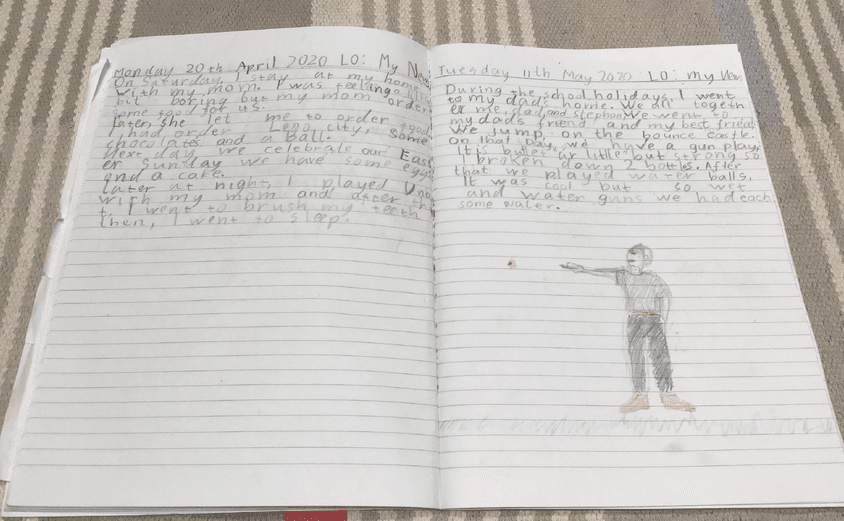 Monday 20th April 2020 LO: My New
On Saturday, I stay at my home
with my mom. I was feeling a
bit boring but my mom order
some food for us.
Later, she let me to order
I had order Lego city, some
chocolates and a ball.
Next day, we celebrate our East
er Sunday we have some eggs
and a cake.
Later at night, I played Uno
with my mom and after th
t, I went to brush my teeth
then, I went to sleep.
Tuesday 11th May 2020 LO: My
During the school holidays, I went
to my dad's home. We all togeth
er me, dad, and Stephan. We went to
my dad's friend and my best friend
We jump on the bounce castle.
On that day, we have a gun play,
It is bullet ar little but strong so
I broken down 2 bottles. After
that we played water balls,
It was cool but so wet
and water guns we had each
some water.